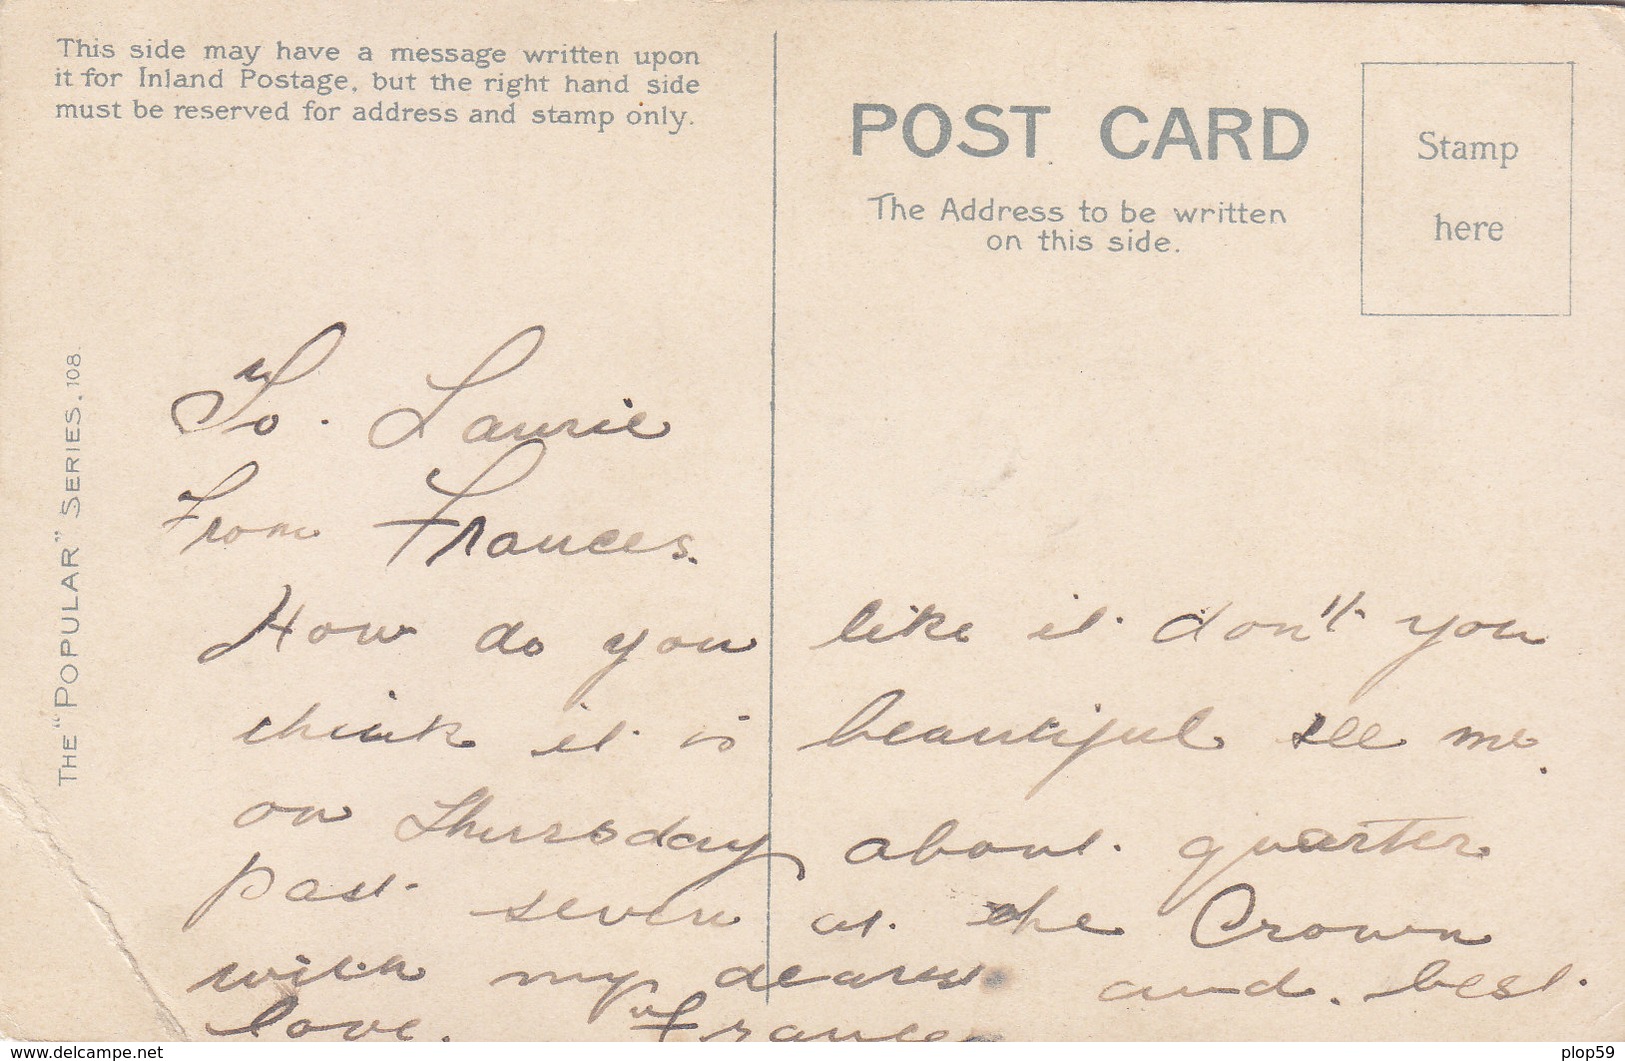 This side may have a message written upon
it for Inland Postage, but the right hand side
must be reserved for address and stamp only.
POST CARD
The Address to be written
on this side.
Stamp
here
THE "POPULAR" SERIES. 108.
To. Laurie
From Frances.
How do you like it don't you
think it is beautiful see me
on Thursday about quarter
past seven at the Crown
with my dearest and best
love. Frances
www.delcampe.net
plop59